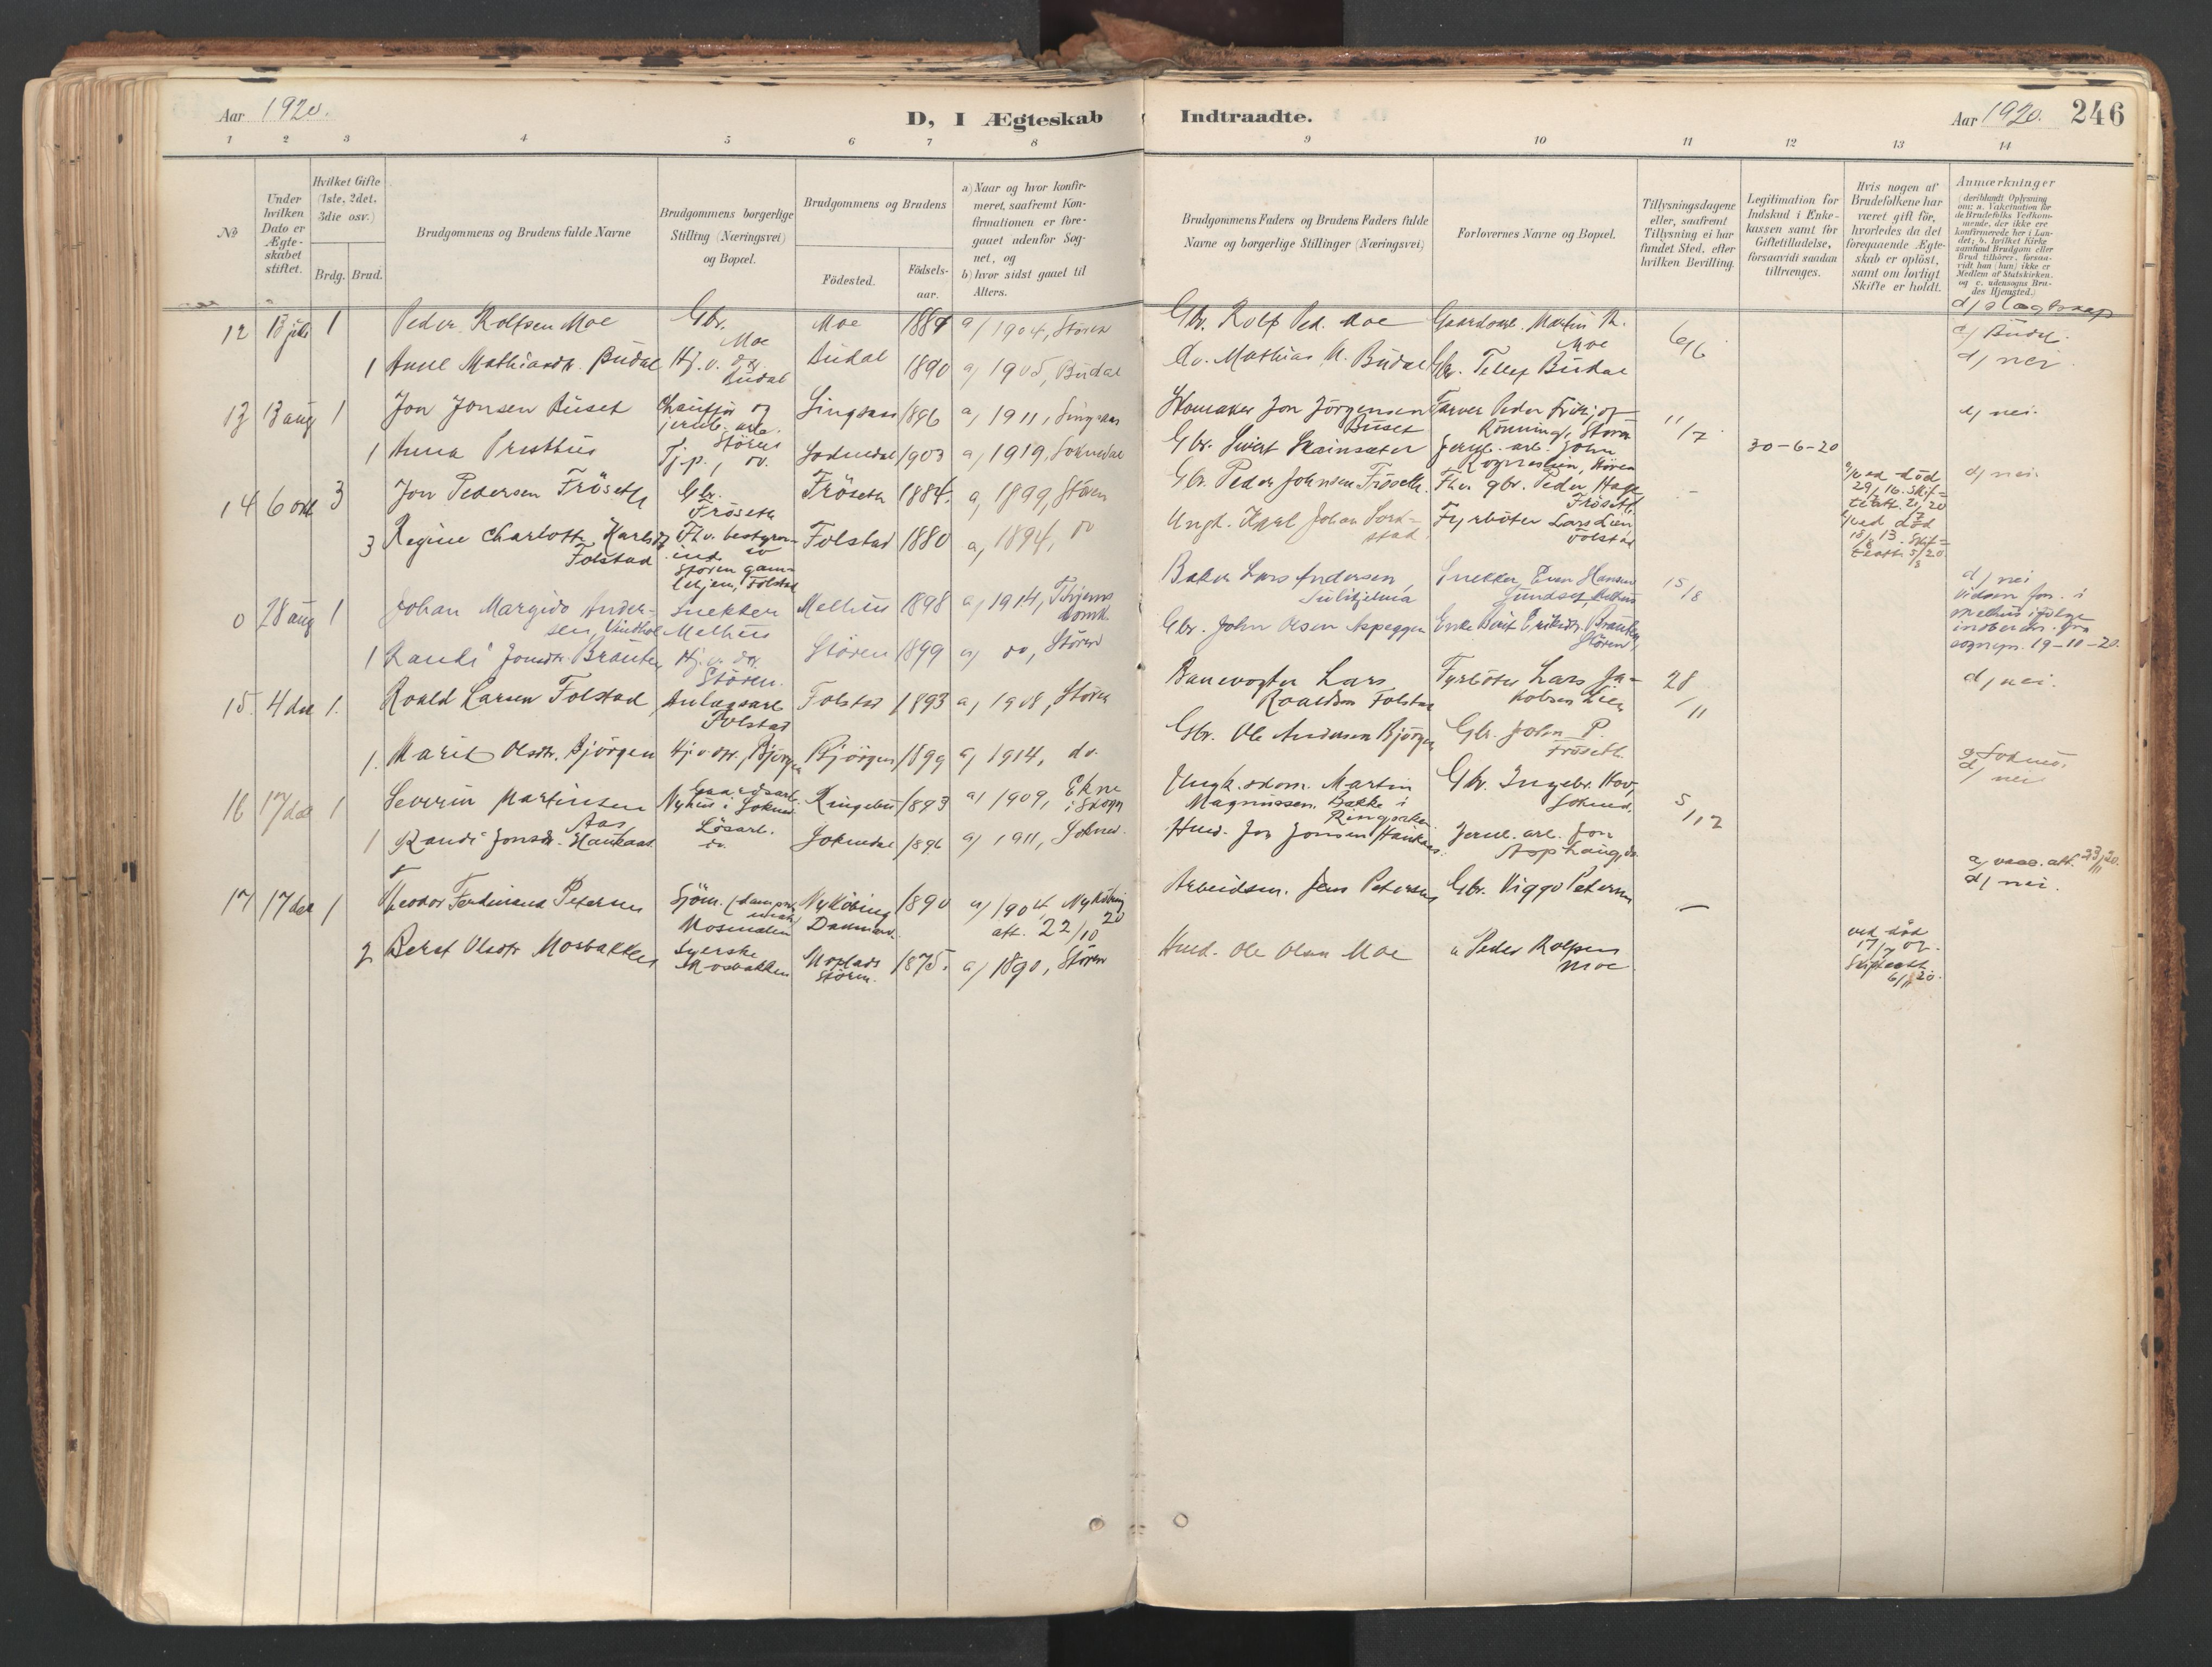 Aar 1920.
D, I Ægteskab Indtraadte.
Aar 1920. 246
1 2 3 4 5 6 7 8 9 10 11 12 13 14
No
Under hvilken Dato er Ægteskabet stiftet.
Hvilket Gifte (1ste, 2det, 3die osv.)
Brdg. Brud.
Brudgommens og Brudens fulde Navne
Brudgommens borgerlige Stilling (Næringsvei) og Bopæl.
Brudgommens og Brudens
Födested.
Födselsaar.
a) Naar og hvor konfirmeret, saafremt Konfirmationen er foregaaet udenfor Sognet, og
b) hvor sidst gaaet til Alters.
Brudgommens Faders og Brudens Faders fulde Navne og borgerlige Stillinger (Næringsvei)
Forlovernes Navne og Bopæl.
Tillysningsdagene eller, saafremt Tillysning ei har fundet Sted, efter hvilken Bevilling.
Legitimation for Indskud i Enkekassen samt for Giftetilladelse, forsaavidt saadan tiltrænges.
Hvis nogen af Brudefolkene har været gift för, hvorledes da det foregaaende Ægteskab er oplöst, samt om lovligt Skifte er holdt.
Anmærkninger (deriblandt Oplysning om: a. Vakcination for de Brudefolks Vedkommende, der ikke ere konfirmerede her i Landet; b. hvilket Kirkesamfund Brudgom eller Brud tilhörer, forsaavidt han (hun) ikke er Medlem af Statskirken, og c. udensogns Brudes Hjemsted.)
d/ slægtskap
12 13 juli 1 Peder Rolfsen Moe Gbr. Moe Moe 1889 a/ 1904, Stören Gbr. Rolf Ped. Moe Gaardarb. Martin R. Moe 6/6 c/ Budal.
1 Anne Mathiasdr. Budal Hj. v. dr. Budal Budal 1890 a/ 1905, Budal Kv. Mathias N. Budal Gbr. Tellef Budal d/ nei.
13 13 aug 1 Jon Jonsen Buset Chauffør og jernb. arb. Stören Singsaas 1896 a/ 1911, Singsaas Skomaker Jon Jörgensen Buset Farver Peder Fritjof Rönning, Stören 11/7 d/ nei.
1 Anna Presthus Tj. p., do. Soknedal 1903 a/ 1919, Soknedal Gbr. Sivert Jernb. arb. John Rognaslien, Stören 30-6-20
14 6 okt 3 Jon Pedersen Fröseth Gbr. Fröseth Fröseth 1884. a/ 1899, Stören Gbr. Peder Johnsen Fröseth. Fhv. gbr. Peder Hage Fröseth - ved död 29/ 16. Skifteatt. 21/ 20 d/ nei.
3 Regine Charlotte Karlsdr Folstad Fhv. bestyrerinde Stören gamlehjem, Folstad Folstad 1880 a, 1894, do Ungk. Karl Johan Fyrböter Lars Lien Folstad ved död 18/8 13. Skifteatt. 5/8 20
0 28 aug 1 Johan Margido Andersen, Snekker Melhus Melhus 1898 a, 1914, Baker Lars Andersen, Sulitjelma Snekker Even Hansen Melhus 15/8 d/ nei Vidsen for. i Melhus ifölge indberetn. fra sognepr. 19-10-20.
1 Randi Jonsdr. Hj. v. dr. Stören. Stören 1899 a, do, Stören Gbr. John Olsen Aspeggen Enke Berit Eriksdr. Stören
15. 4 dec 1. Roald Larsen Folstad Anlægsarb Folstad Folstad 1893 a, 1908, Stören Banevogter Lars Roaldsen Folstad Fyrböter Lars Jakobsen Lien 28/11 d/ nei.
1. Marit Olsdtr. Bjørgen Hj. v. dr., Bjørgen Bjørgen 1899 a, 1914, do. Gbr. Ole Andersen Bjørgen Gbr. John P. Fröseth
16 17 dec 1 Severin Martinsen Aas Gaardsarb. Nyhus i Soknedal Ringebu 1893 a/ 1909, Ekne i Skogn Ungk. skom. Martin Magnussen Bakke i Ringsaker Gbr. Ingebr. Hov, Soknd, 5/12 c/ Soknd. d/ nei
1 Randi Jonsdr. Haukaas Lösarb. do. Soknedal 1896 a, 1911, Soknd. Husd. Jon Jonsen Haukaas. Jernb. arb. Jon Asphaug, do.
17 17 dec 1 Theodor Ferdinand Petersen Sjöm. Mosmalin Nyköbing Danmark. 1890 a/ 1904 Nyköbing att. 22/10 20 Arbeidsm. Jens Petersen Gbr. Viggo Petersen - a/ vacc. att. 23/11 20. d/ nei.
2 Beret Olsdtr Mosbakken Syerske Mosbakken Moplads Stören. 1875. a/ 1890, Stören Husd. Ole Olsen Moe " Peder Rolfsen Moe. ved död 17/7 07. Skifteatt 6/11 20.